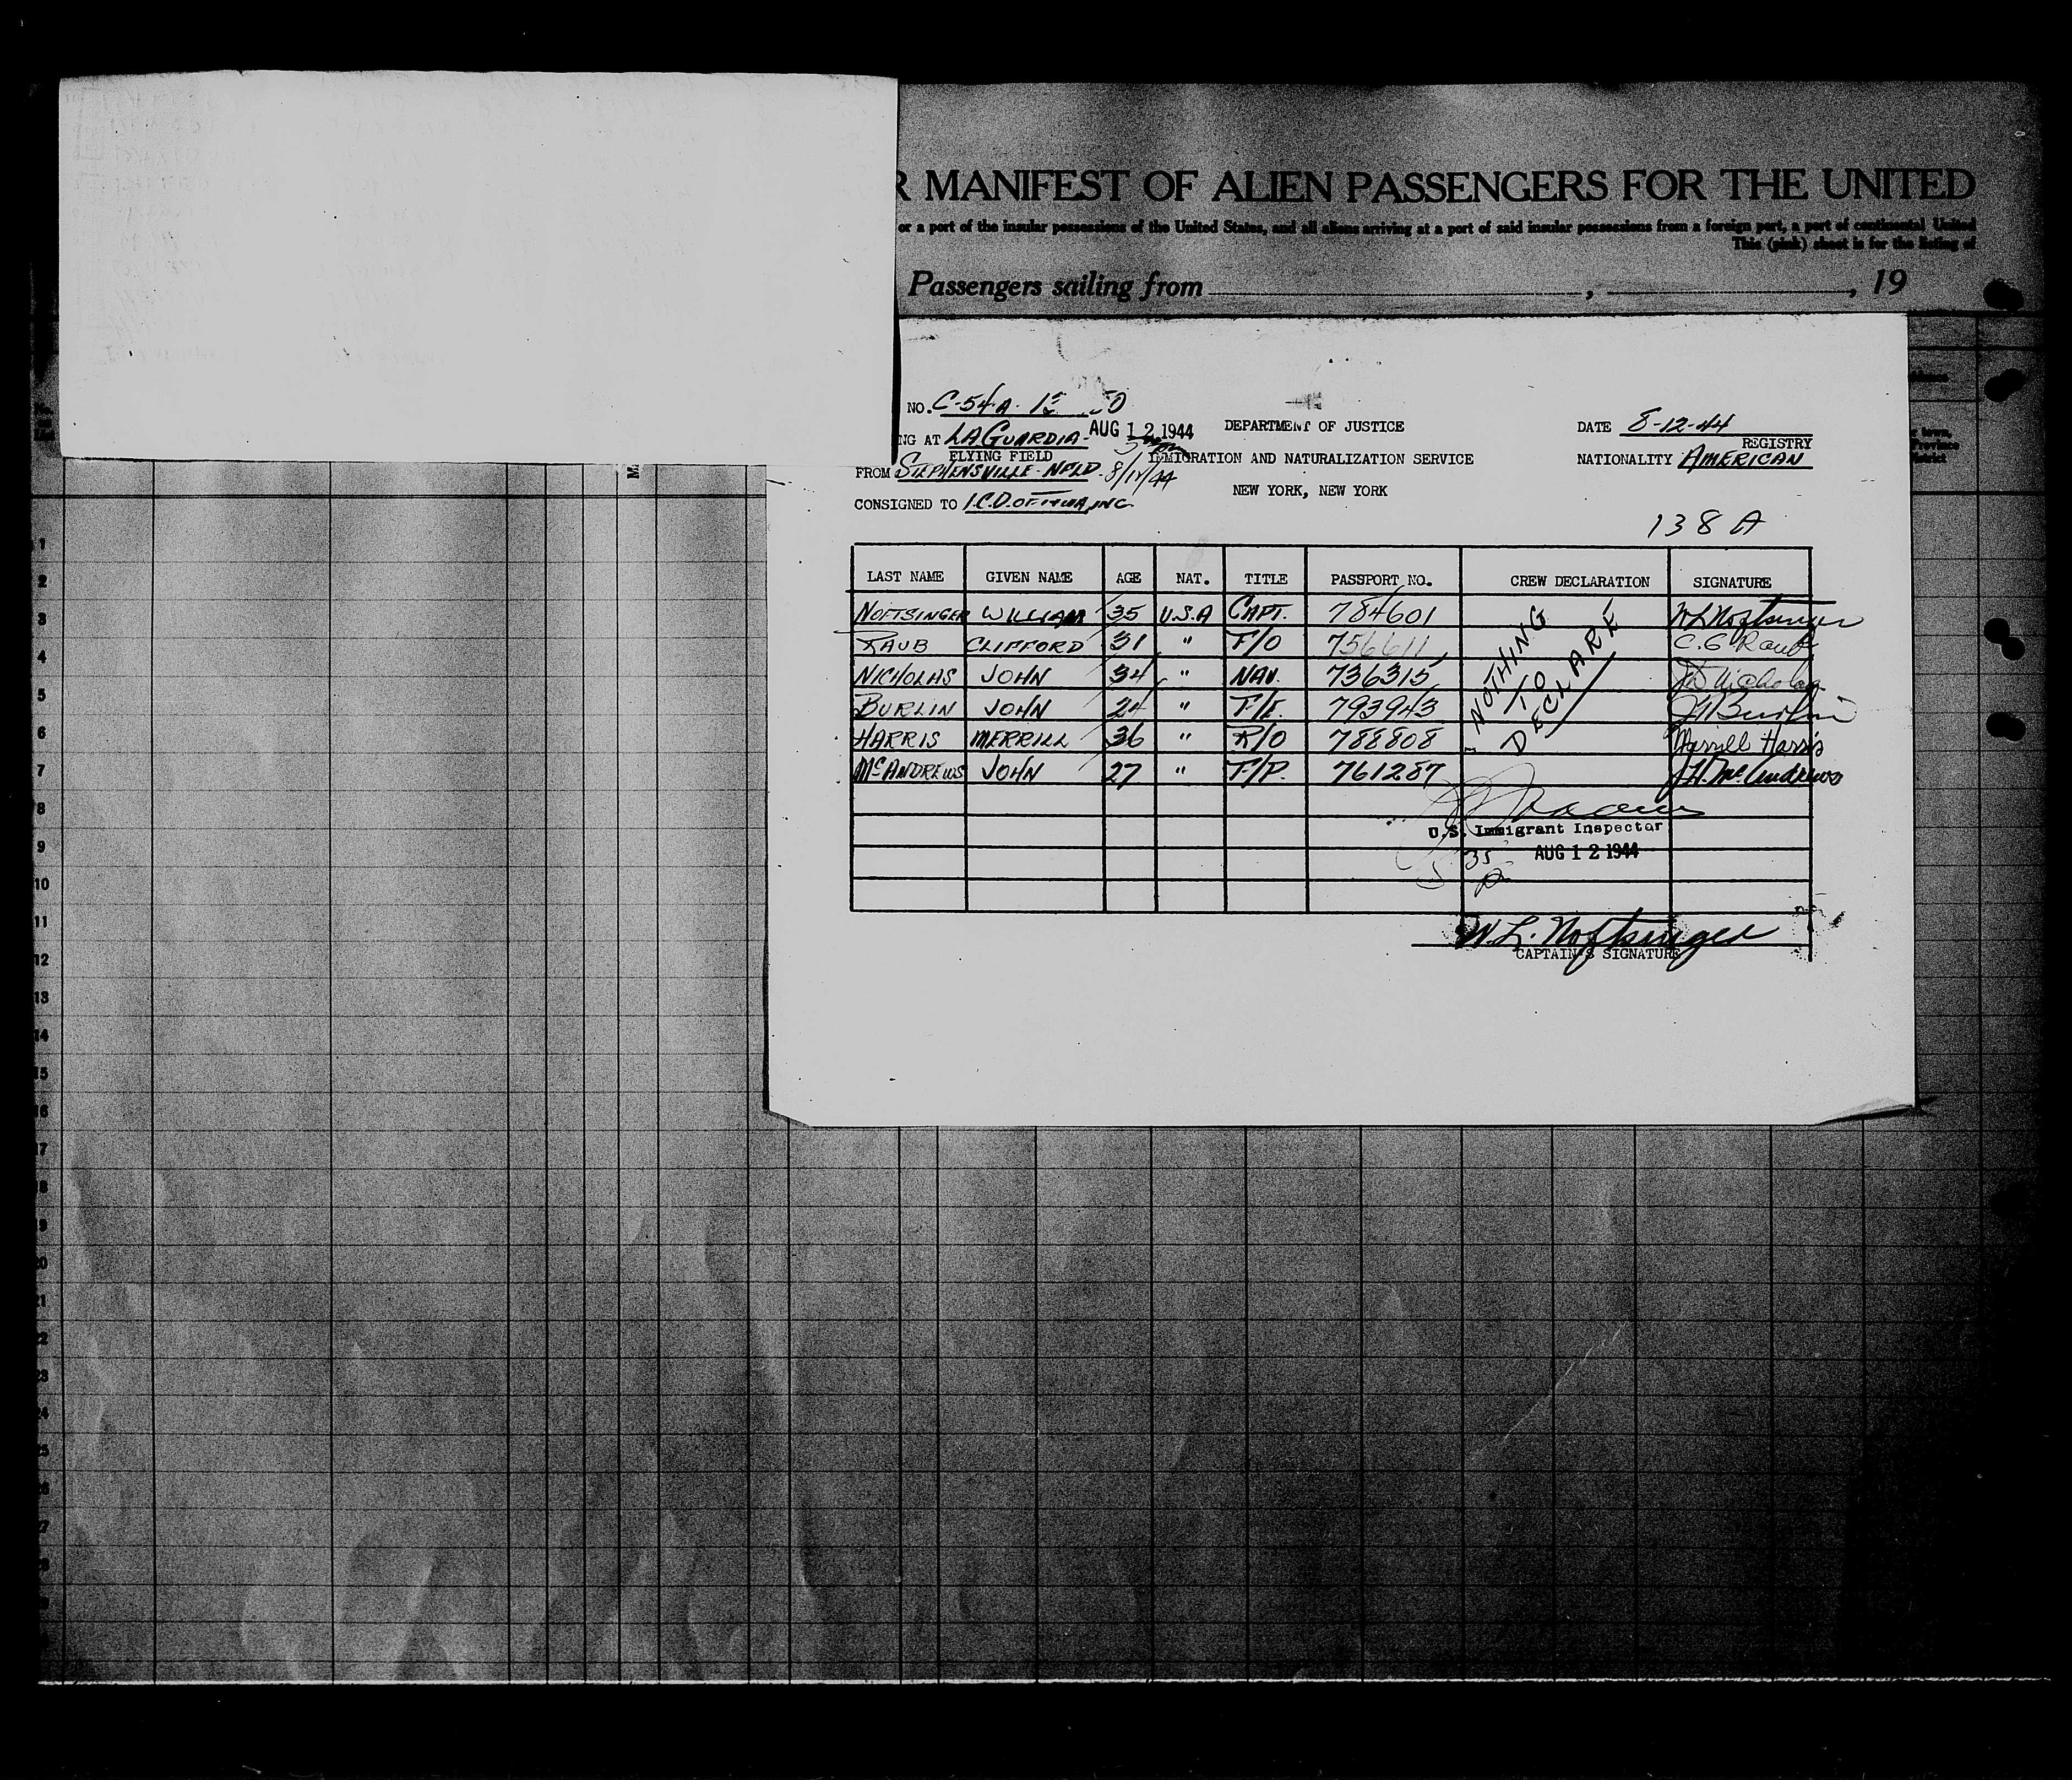 R MANIFEST OF ALIEN PASSENGERS FOR THE UNITED
or a part of the insular possessions of the United States, and all aliens arriving at a port of said insular possessions from a foreign port, a port of continental United
This (pink) sheet is for the listing of
Passengers sailing from , , 19
NO. C-54A-
NG AT LAGUARDIA- AUG 12 1944 DEPARTMENT OF JUSTICE DATE 8-12-44
FLYING FIELD REGISTRY
FROM STEPHENSVILLE-NFLD. 8/11/44 IMMIGRATION AND NATURALIZATION SERVICE NATIONALITY AMERICAN
NEW YORK, NEW YORK
CONSIGNED TO I.C.D. OF TWA, INC.
138 A
LAST NAME GIVEN NAME AGE NAT. TITLE PASSPORT NO. CREW DECLARATION SIGNATURE
NOFTSINGER WILLIAM 35 U.S.A CAPT. 784601 W L Noftsinger
RAUB CLIFFORD 31 " F/O 756611 C. G Raub
NICHOLAS JOHN 34 " NAV. 736315 Nicholas
BURLIN JOHN 24 " F/E. 793943 Burlin
HARRIS MERRILL 36 " R/O 788808 Merrill Harris
McANDREWS JOHN 27 " F/P. 761287 J.H. McAndrews
NOTHING
TO
DECLARE
U.S. Immigrant Inspector
35 AUG 12 1944
W. L. Noftsinger
CAPTAIN'S SIGNATURE
1
2
3
4
5
6
7
8
9
10
11
12
13
14
15
16
17
18
19
20
21
22
23
24
25
26
27